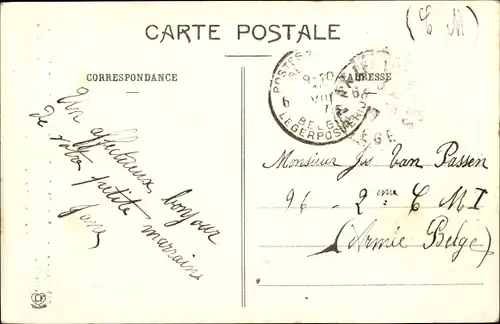 CARTE POSTALE
(E M)
CORRESPONDANCE
ADRESSE
POSTES
9-10
VIII
6
BELGI
LEGERPOSTERIJ
Un affectueux bonjour
de votre petite marraine
Monsieur Js Van Passen
96 - 2me C M I
(Armée Belge)